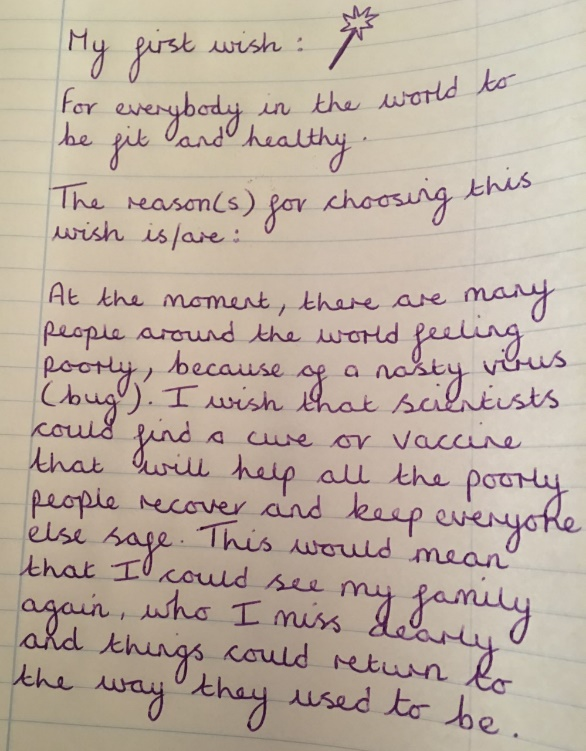 My first wish :
For everybody in the world to
be fit and healthy.
The reason(s) for choosing this
wish is/are :
At the moment, there are many
people around the world feeling
poorly, because of a nasty virus
(bug). I wish that scientists
could find a cure or vaccine
that will help all the poorly
people recover and keep everyone
else safe. This would mean
that I could see my family
again, who I miss dearly
and things could return to
the way they used to be.